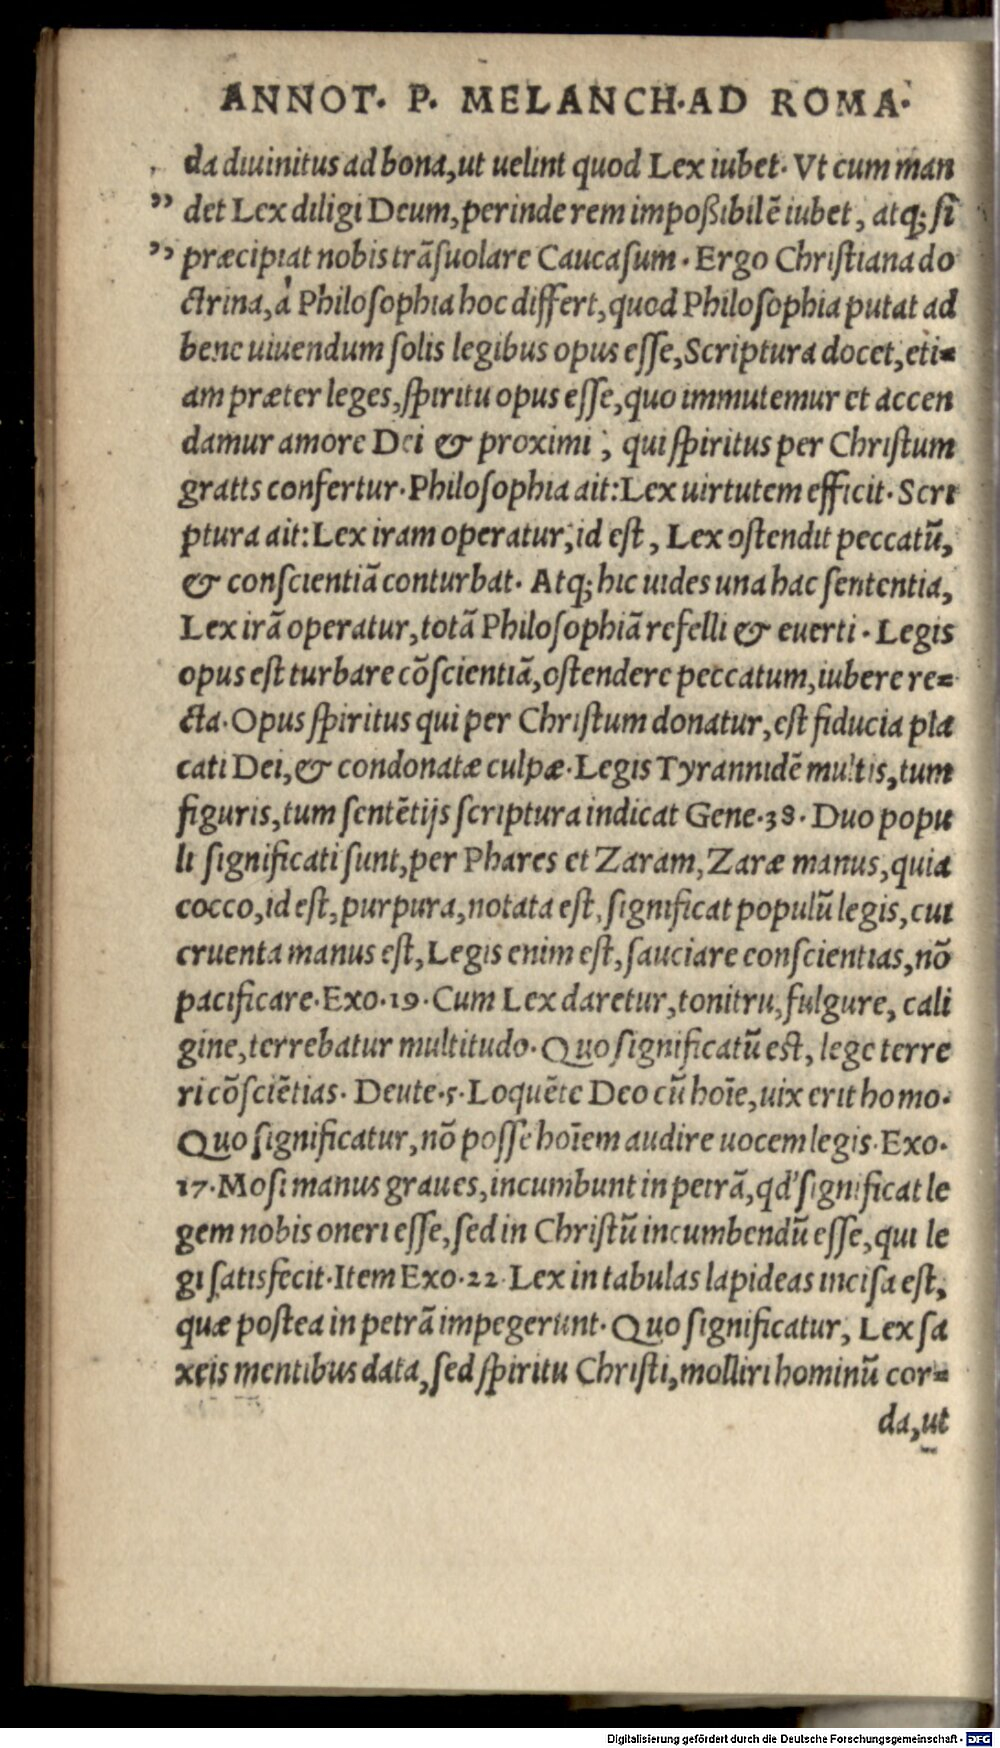 ANNOT. P. MELANCH. AD ROMA.
da diuinitus ad bona, ut uelint quod Lex iubet. Vt cum man
” det Lex diligi Deum, perinde rem impoßibilē iubet, atq; si
” præcipiat nobis trāsuolare Caucasum. Ergo Christiana do
ctrina, à Philosophia hoc differt, quod Philosophia putat ad
bene uiuendum solis legibus opus esse, Scriptura docet, eti=
am præter leges, spiritu opus esse, quo immutemur et accen
damur amore Dei & proximi, qui spiritus per Christum
gratis confertur. Philosophia ait: Lex uirtutem efficit. Scri
ptura ait: Lex iram operatur, id est, Lex ostendit peccatū,
& conscientiā conturbat. Atq; hic uides una hac sententia,
Lex irā operatur, totā Philosophiā refelli & euerti. Legis
opus est turbare cōscientiā, ostendere peccatum, iubere re=
cta. Opus spiritus qui per Christum donatur, est fiducia pla
cati Dei, & condonatæ culpæ. Legis Tyrannidē multis, tum
figuris, tum sentētijs scriptura indicat Gene. 38. Duo popu
li significati sunt, per Phares et Zaram, Zaræ manus, quia
cocco, id est, purpura, notata est, significat populū legis, cui
cruenta manus est, Legis enim est, sauciare conscientias, nō
pacificare. Exo. 19. Cum Lex daretur, tonitru, fulgure, cali
gine, terrebatur multitudo. Quo significatū est, lege terre
ri cōsciētias. Deute. 5. Loquēte Deo cū hoīe, uix erit homo.
Quo significatur, nō posse hoīem audire uocem legis. Exo.
17. Mosi manus graues, incumbunt in petrā, qd' significat le
gem nobis oneri esse, sed in Christū incumbendū esse, qui le
gi satisfecit. Item Exo. 22 Lex in tabulas lapideas incisa est,
quæ postea in petrā impegerunt. Quo significatur, Lex sa
xeis mentibus data, sed spiritu Christi, molliri hominū cor=
da, ut
Digitalisierung gefördert durch die Deutsche Forschungsgemeinschaft - DFG